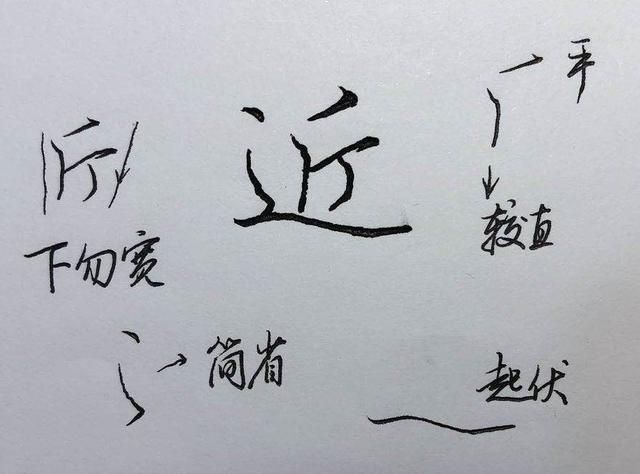 平
近
较直
斤
下勿宽
简省
起伏